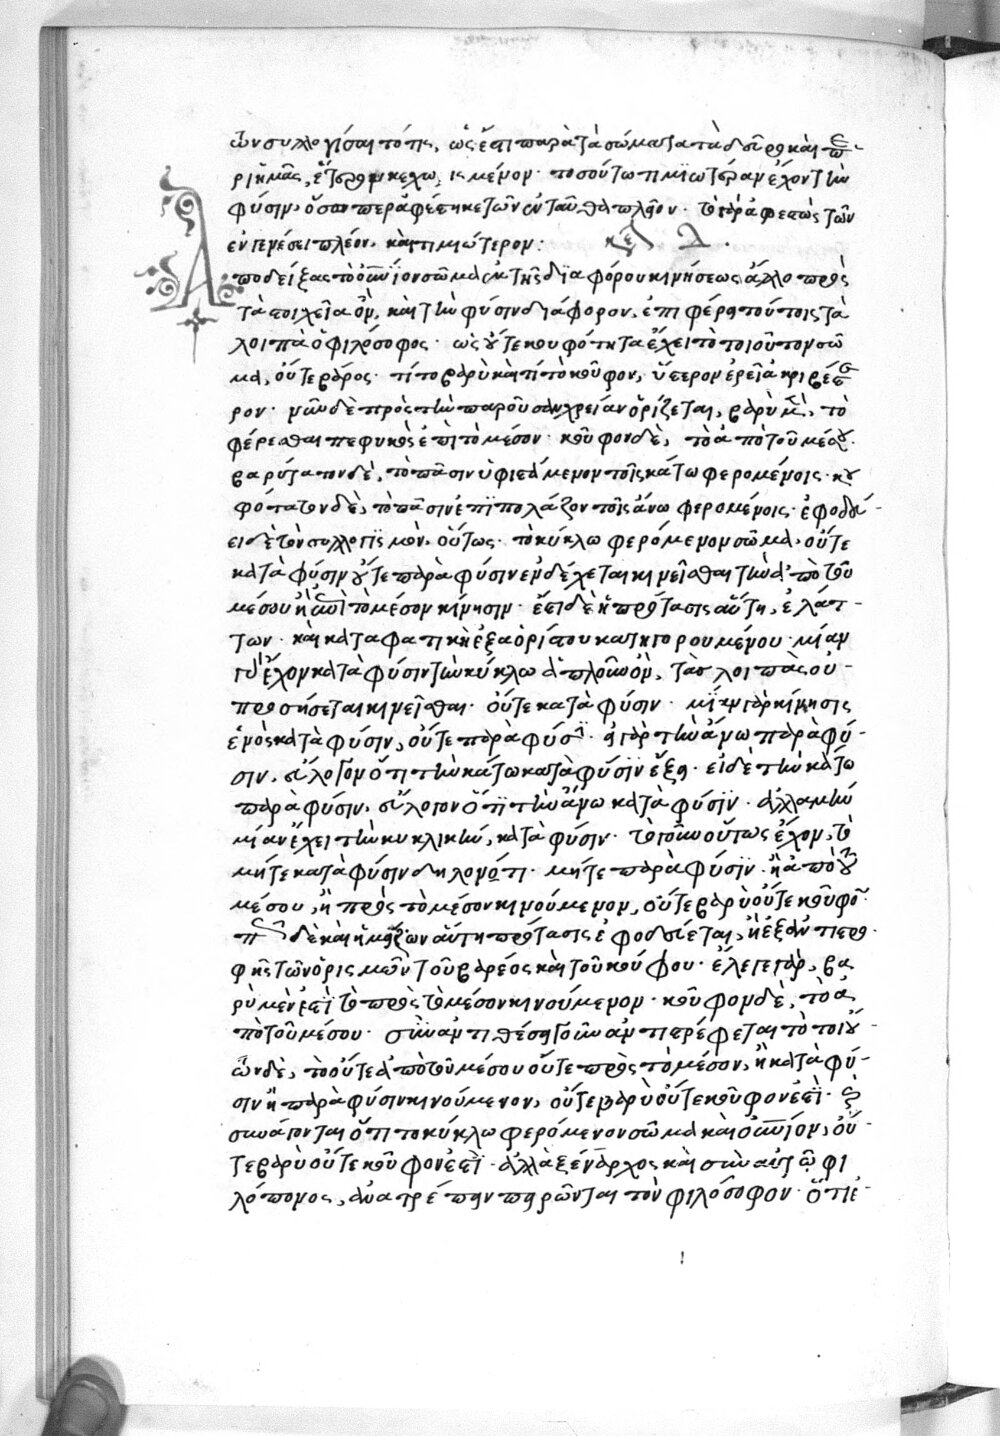 ὧν συλλογίσαιτό τις, ὡς ἔστι παρὰ τὰ σώματα τὰ δεῦρο καὶ πε
ρὶ ἡμᾶς, ἕτερον κεχωρισμένον· τοσούτω τιμιωτέραν ἔχον τὴν
φύσιν, ὅσον περ ἀφέστηκε τῶν ἐνταῦθα πλέον· τὸ γὰρ ἀφεστὼς τῶν
ἐν γενέσει πλέον, καὶ τιμιώτερον: κεφ λ.
Αποδείξας τὸ οὐράνιον σῶμα ἐκ τῆς διαφόρου κινήσεως ἄλλο πρὸς
τὰ στοιχεῖα ὂν, καὶ τὴν φύσιν διάφορον, ἐπιφέρει τούτοις τὰ
λοιπὰ ὁ φιλόσοφος· ὡς οὔτε κουφότητα ἔχει τὸ τοιοῦτον σῶ
μα, οὔτε βάρος· τί τὸ βαρὺ καὶ τί τὸ κοῦφον, ὕστερον ἐρεῖ ἀκριβέστε
ρον· νῦν δὲ πρὸς τὴν παροῦσαν χρείαν ὁρίζεται, βαρὺ μὲν, τὸ
φέρεσθαι πεφυκὸς ἐπὶ τὸ μέσον· κοῦφον δὲ, τὸ ἀπὸ τοῦ μέσου·
βαρύτατον δὲ, τὸ πᾶσιν ὑφιστάμενον τοῖς κάτω φερομένοις· κου
φότατον δὲ, τὸ πᾶσιν ἐπιπολάζον τοῖς ἄνω φερομένοις· ἐφοδεύ-
ει δὲ τὸν συλλογισμὸν, οὕτως· τὸ κύκλω φερόμενον σῶμα, οὔτε
κατὰ φύσιν οὔτε παρὰ φύσιν ἐνδέχεται κινεῖσθαι τὴν ἀπὸ τοῦ
μέσου ἢ ἐπὶ τὸ μέσον κίνησιν· ἔστι δὲ ἡ πρότασις αὕτη, ἐλάτ-
των· καὶ καταφατικὴ ἐξ ἀορίστου κατηγορουμένου· μίαν
γὰρ ἔχον κατὰ φύσιν τὴν κύκλω ἁπλοῦν ὂν, τὰς λοιπὰς οὐ-
προσήσεται κινεῖσθαι· οὔτε κατὰ φύσιν· μία γὰρ κίνησις
ἑνὸς κατὰ φύσιν, οὔτε παρὰ φύσιν· εἰ γὰρ τὴν ἄνω παρὰ φύ
σιν, εὔλογον ὅτι τὴν κάτω κατὰ φύσιν ἕξει· εἰ δὲ τὴν κάτω
παρὰ φύσιν, εὔλογον ὅτι τὴν ἄνω κατὰ φύσιν· ἀλλὰ μὴν
μίαν ἔχει τὴν κυκλικὴν, κατὰ φύσιν· τὸ τοίνυν οὕτως ἔχον, τὸ
μήτε κατὰ φύσιν δηλονότι· μήτε παρὰ φύσιν· ἢ ἀπὸ τοῦ
μέσου, ἢ πρὸς τὸ μέσον κινούμενον, οὔτε βαρὺ οὔτε κοῦφον·
δὲ καὶ ἡ μείζων αὕτη πρότασις ἐφοδεύεται, ἢ ἐξ ἀντιστρο
φῆς τῶν ὁρισμῶν τοῦ βαρέος καὶ τοῦ κούφου· ἔλεγε γὰρ, βα
ρὺ μὲν ἐστὶ τὸ πρὸς τὸ μέσον κινούμενον· κοῦφον δὲ, τὸ ἀ
πὸ τοῦ μέσου· σὺν ἀντιθέσει γοῦν ἀντιστρέφεται τὸ τοιοῦ-
ον δὲ, τὸ οὔτε ἀπὸ τοῦ μέσου οὔτε πρὸς τὸ μέσον, ἢ κατὰ φύ-
σιν ἢ παρὰ φύσιν κινούμενον, οὔτε βαρὺ οὔτε κοῦφον ἐστὶ· καὶ
συνάγονται ὅτι τὸ κύκλω φερόμενον σῶμα καὶ οὐράνιον, οὔ-
τε βαρὺ οὔτε κοῦφον ἐστὶ· ἀλλὰ ξέναρχος καὶ σὺν αὐτῷ φι
λόπονος, ἀνατρέπειν πειρῶνται τὸν φιλόσοφον· ὅτι ἐ-